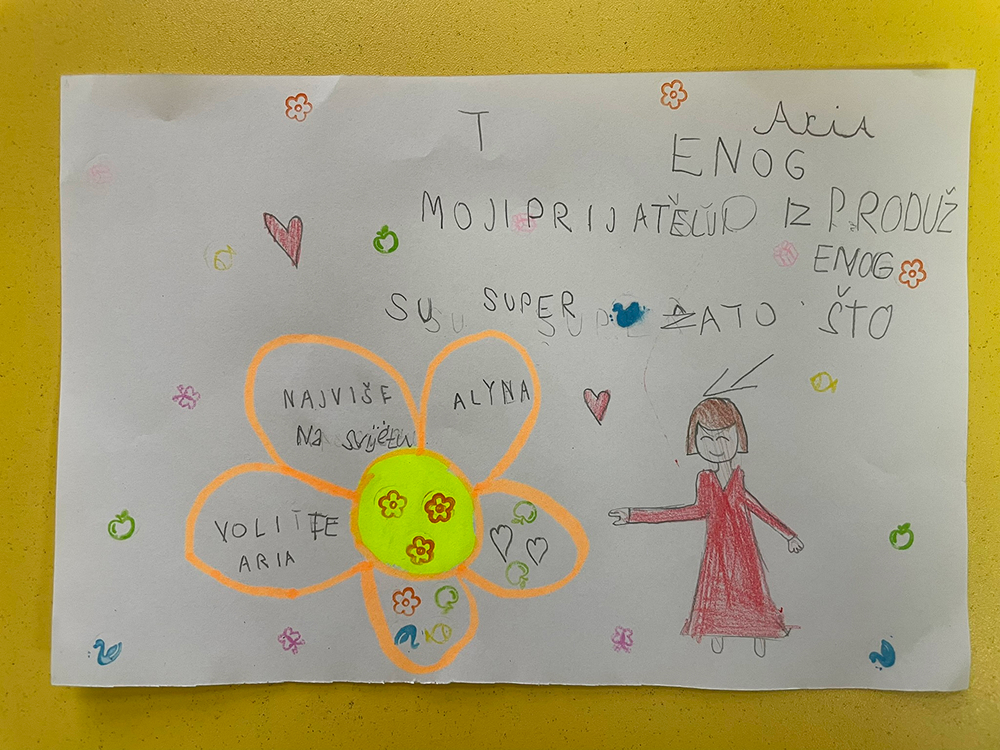 T
Aria
ENOG
MOJI PRIJATELJI IZ PRODUŽ
ENOG
SU SUPER ZATO ŠTO
NAJVIŠE
Na svijetu
ALYNA
VOLI TE
ARIA